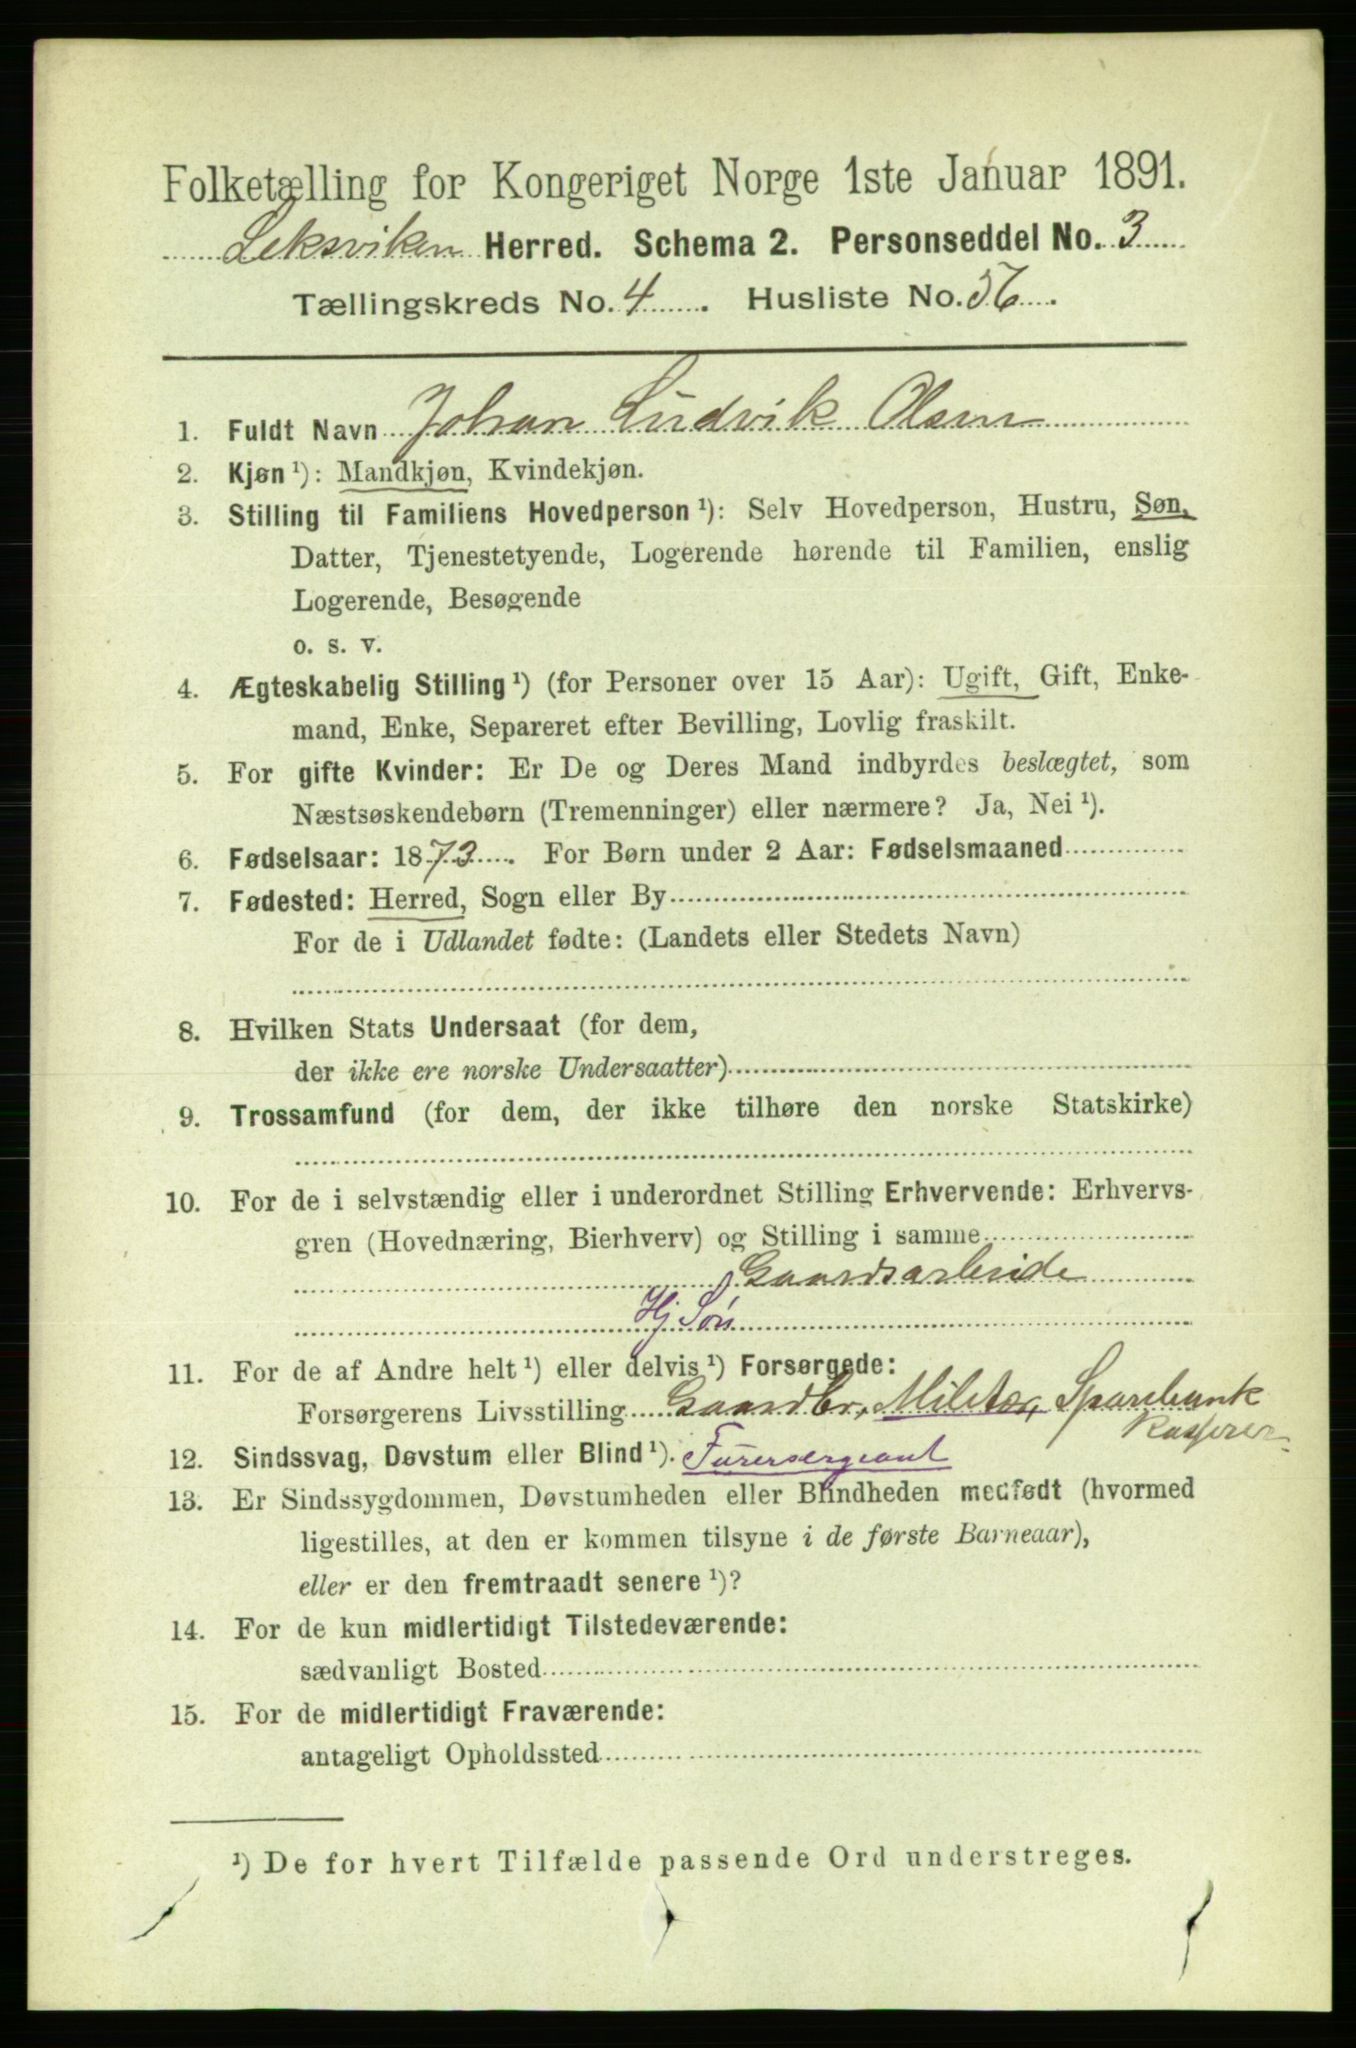 Folketælling for Kongeriget Norge 1ste Januar 1891.
Leksviken Herred. Schema 2. Personseddel No. 3
Tællingskreds No. 4. Husliste No. 56.
1. Fuldt Navn Johan Ludvik Olsen
2. Kjøn ¹): Mandkjøn, Kvindekjøn.
3. Stilling til Familiens Hovedperson ¹): Selv Hovedperson, Hustru, Søn,
Datter, Tjenestetyende, Logerende hørende til Familien, enslig
Logerende, Besøgende
o. s. v.
4. Ægteskabelig Stilling ¹) (for Personer over 15 Aar): Ugift, Gift, Enke-
mand, Enke, Separeret efter Bevilling, Lovlig fraskilt.
5. For gifte Kvinder: Er De og Deres Mand indbyrdes beslægtet, som
Næstsøskendebørn (Tremenninger) eller nærmere? Ja, Nei ¹).
6. Fødselsaar: 1873. For Børn under 2 Aar: Fødselsmaaned
7. Fødested: Herred, Sogn eller By
For de i Udlandet fødte: (Landets eller Stedets Navn)
8. Hvilken Stats Undersaat (for dem,
der ikke ere norske Undersaatter)
9. Trossamfund (for dem, der ikke tilhøre den norske Statskirke)
10. For de i selvstændig eller i underordnet Stilling Erhvervende: Erhvervs-
gren (Hovednæring, Bierhverv) og Stilling i samme
Gaardsarbeide
Hj Søn
11. For de af Andre helt ¹) eller delvis ¹) Forsørgede:
Forsørgerens Livsstilling Gaardbr, Militær, Sparebank
Kasserer
12. Sindssvag, Døvstum eller Blind ¹). Furersergeant
13. Er Sindssygdommen, Døvstumheden eller Blindheden medfødt (hvormed
ligestilles, at den er kommen tilsyne i de første Barneaar),
eller er den fremtraadt senere ¹)?
14. For de kun midlertidigt Tilstedeværende:
sædvanligt Bosted
15. For de midlertidigt Fraværende:
antageligt Opholdssted
¹) De for hvert Tilfælde passende Ord understreges.